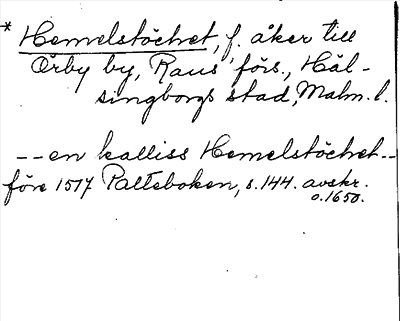 * Hemelstöchet, f. åker till
Örby by, Raus förs., Häl-
singborgs stad, Malm. l.
-- en kalliss Hemelstöchet --
före 1517 Palteboken, s. 144. avskr.
o. 1650.